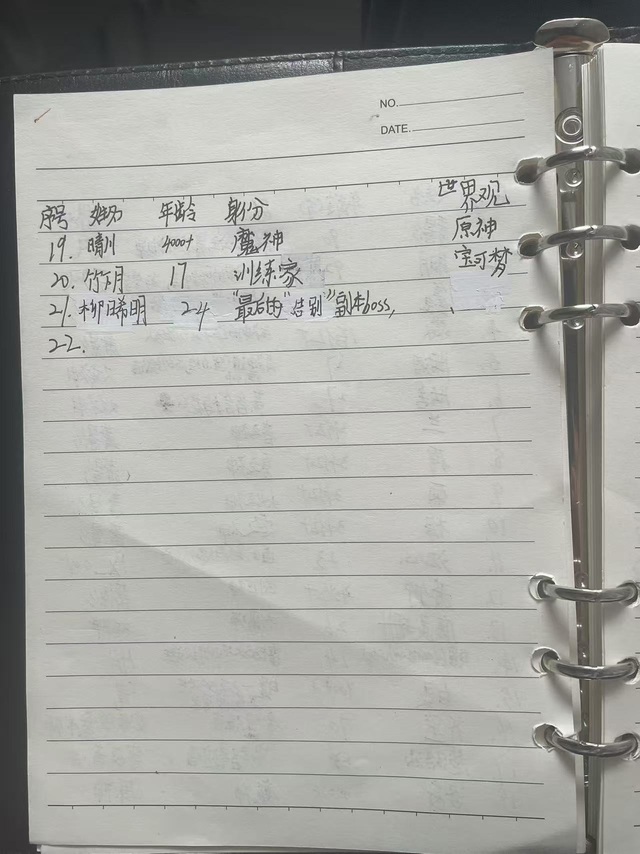 NO.
DATE.
序号 姓名 年龄 身份 世界观
19. 晴川 4000+ 魔神 原神
20. 竹月 17 训练家 宝可梦
21. 柳晞明 24 "最后的"告别"副本boss,
22.